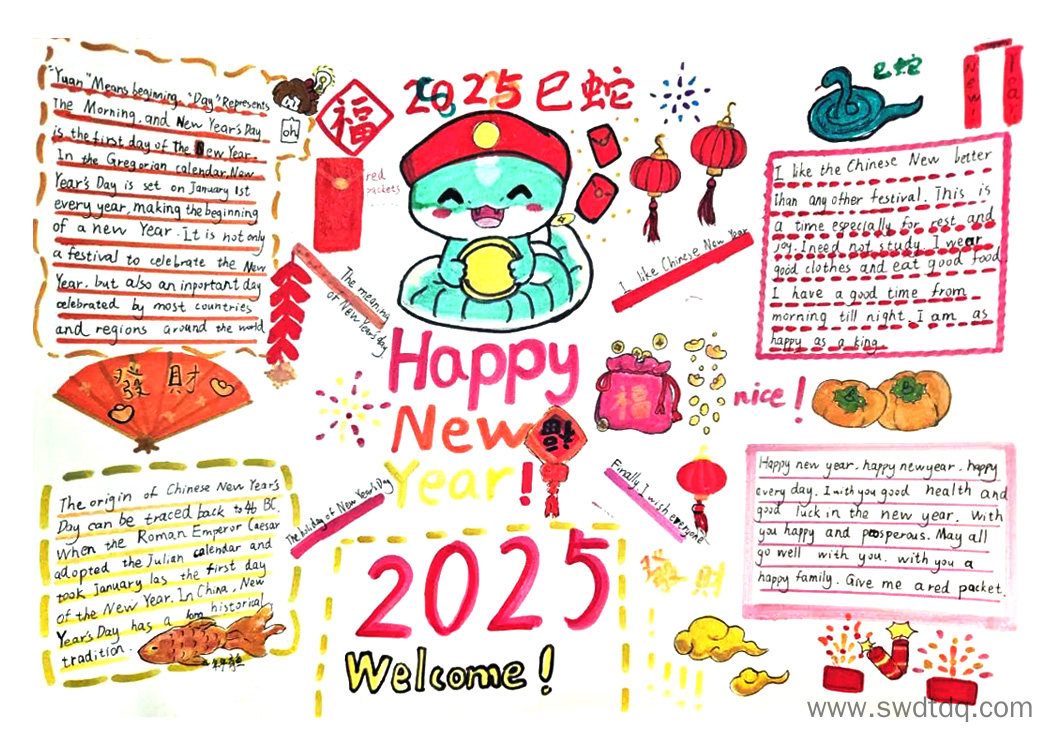 "Yuan" Means beginning, "Day" Represents
the Morning, and New Year's Day
is the first day of The New Year.
In the Gregorian calendar, New
Year's Day is set on January 1st
every year, making the beginning
of a new Year. It is not only
a festival to celebrate the New
Year. but also an inportant day
celebrated by most countries
and regions around the world
oh
福
red
packets
2025 巳蛇
The meaning
of New Year's day
發財
Happy
New
Year!
福
I like Chinese New Year
巳蛇
New
Year
I like the Chinese New better
than any other festival. This is
a time especially for rest and
joy. I need not study. I wear
good clothes and eat good food
I have a good time from
morning till night. I am as
happy as a king.
福
nice!
The holiday of New Year's Day
Finally I wish everyone
The origin of Chinese New Year's
Day can be traced back to 46 BC,
when the Roman Emperor Caesar
adopted the Julian calendar and
took January 1as the first day
of the New Year. In China, New
Year's Day has a long historical
tradition.
2025
Welcome!
發財
!!!!
Happy new year. happy new year. happy
every day. I with you good health and
good luck in the new year. With
you happy and prosperous. May all
go well with you. with you a
happy family. Give me a red packet.
www.swdtdq.com